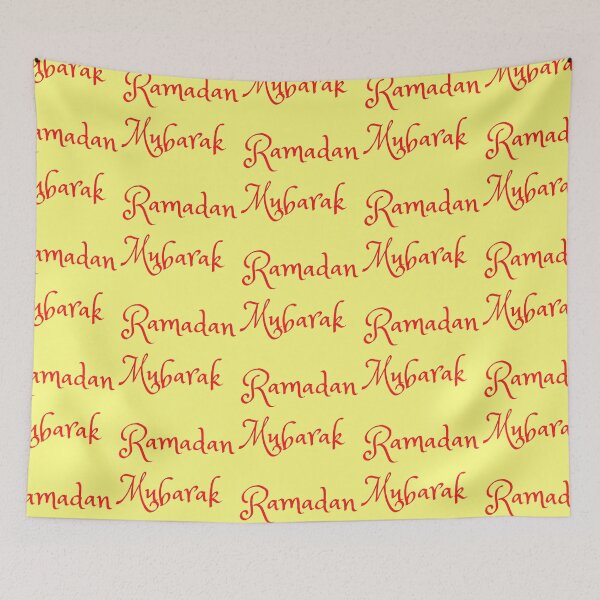 ybarak Ramadan Mubarak Ramadan Mubara
amadan Mubarak Ramadan Mubarak Ramada
ybarak Ramadan Mubarak Ramadan Mubara
amadan Mubarak Ramadan Mubarak Ramada
ybarak Ramadan Mubarak Ramadan Mubara
amadan Mubarak Ramadan Mubarak Ramada
ybarak Ramadan Mubarak Ramadan Mubara
amadan Mubarak Ramadan Mubarak Ramada